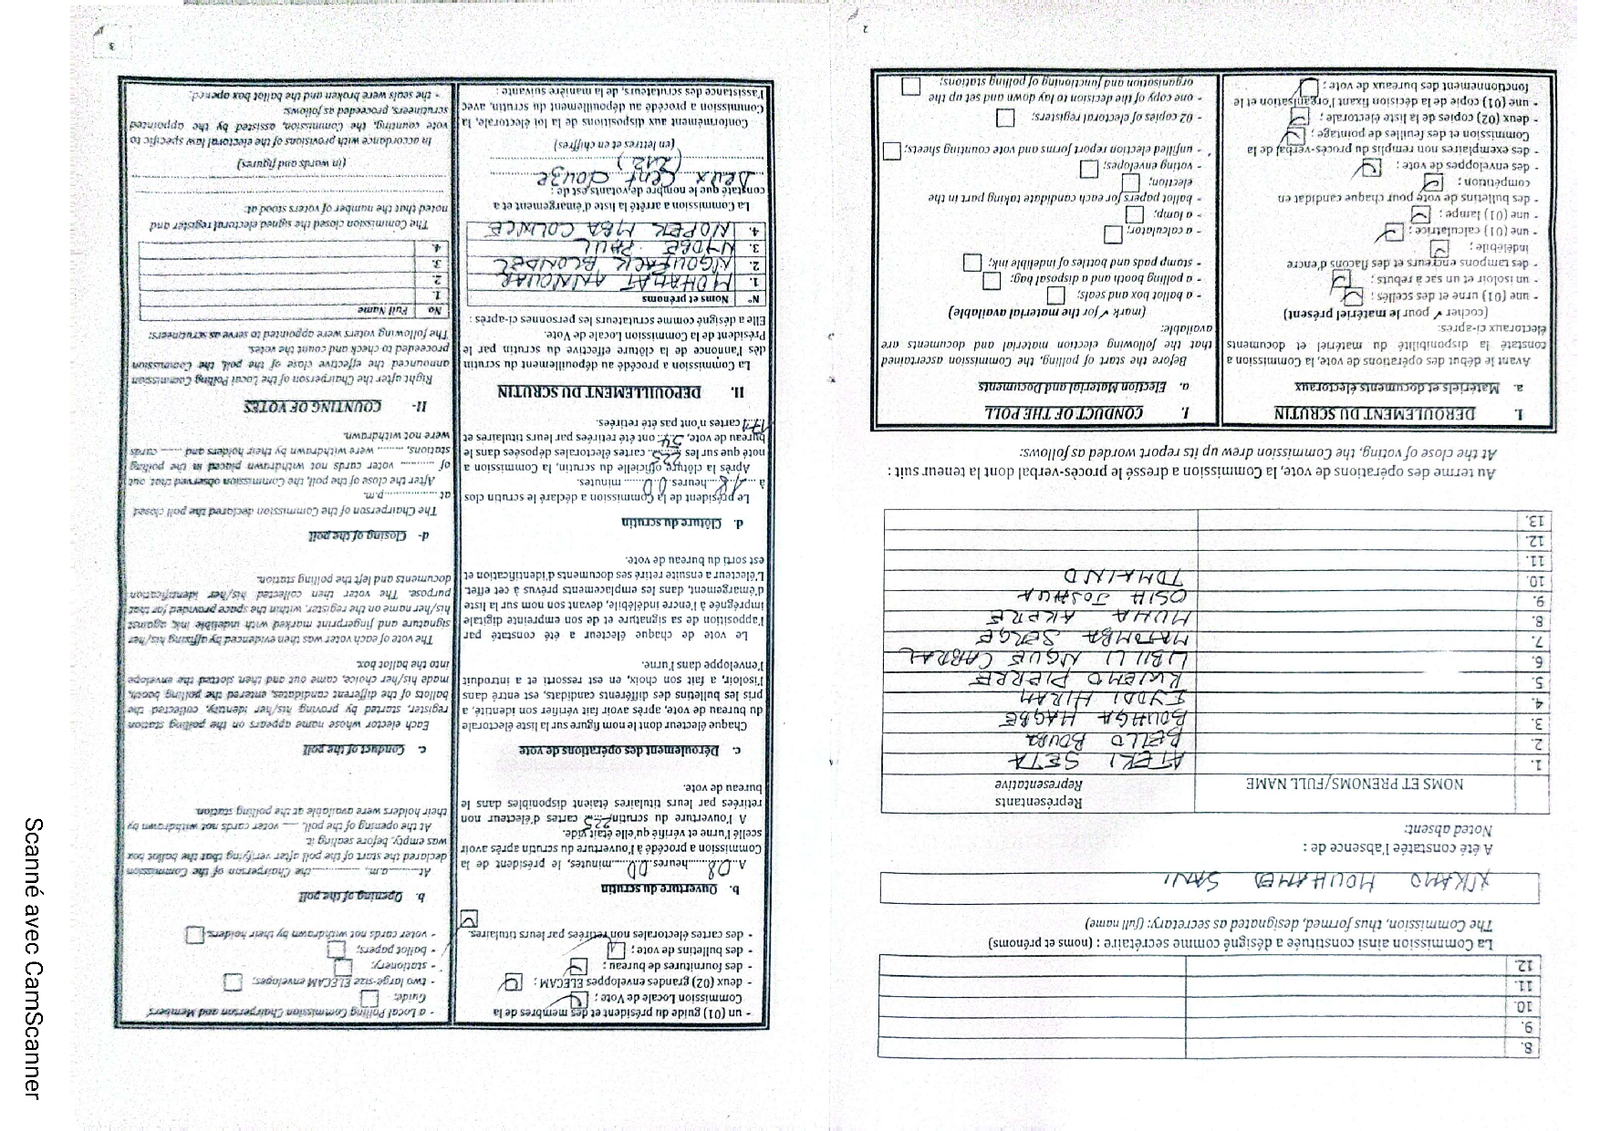 8.
9.
10.
11.
12.
La Commission ainsi constituée a désigné comme secrétaire : (noms et prénoms)
The Commission, thus formed, designated as secretary: (full name)
NKAMO MOUHAMED SANI
A été constatée l'absence de :
Noted absent:
NOMS ET PRENOMS/FULL NAME
Représentants
Representative
1. ATEKI SETA
2. BELLO BOUBA
3. BOUHGA HAGBE
4. EYDDI HIRAM
5. KWEMO PIERRE
6. LIBILI NGUE CABRAL
7. MATOMBA SERGE
8. MUNA AKERE
9. OSIH JOSHUA
10. TOMAINO
11.
12.
13.
Au terme des opérations de vote, la Commission a dressé le procès-verbal dont la teneur suit :
At the close of voting, the Commission drew up its report worded as follows:
I. DEROULEMENT DU SCRUTIN
a. Matériels et documents électoraux
Avant le début des opérations de vote, la Commission a
constaté la disponibilité du matériel et documents
électoraux ci-après:
(cocher ✓ pour le matériel présent)
- une (01) urne et des scellés ;
- un isoloir et un sac à rebuts ;
- des tampons encreurs et des flacons d'encre
indélébile ;
- une (01) calculatrice ;
- une (01) lampe ;
- des bulletins de vote pour chaque candidat en
compétition ;
- des enveloppes de vote ;
- des exemplaires non remplis du procès-verbal de la
Commission et des feuilles de pointage ;
- deux (02) copies de la liste électorale ;
- une (01) copie de la décision fixant l'organisation et le
fonctionnement des bureaux de vote ;
I. CONDUCT OF THE POLL
a. Election Material and Documents
Before the start of polling, the Commission ascertained
that the following election material and documents are
available:
(mark ✓ for the material available)
- a ballot box and seals;
- a polling booth and a disposal bag;
- stamp pads and bottles of indelible ink;
- a calculator;
- a lamp;
- ballot papers for each candidate taking part in the
election;
- voting envelopes;
- unfilled election report forms and vote counting sheets;
- 02 copies of electoral registers;
- one copy of the decision to lay down and set up the
organisation and functioning of polling stations;
2
- un (01) guide du président et des membres de la
Commission Locale de Vote ;
- deux (02) grandes enveloppes ELECAM ;
- des fournitures de bureau ;
- des bulletins de vote ;
- des cartes électorales non retirées par leurs titulaires.
b. Ouverture du scrutin
A 08 heures 00 minutes, le président de la
Commission a procédé à l'ouverture du scrutin après avoir
scellé l'urne et vérifié qu'elle était vide.
A l'ouverture du scrutin 225 cartes d'électeur non
retirées par leurs titulaires étaient disponibles dans le
bureau de vote.
c. Déroulement des opérations de vote
Chaque électeur dont le nom figure sur la liste électorale
du bureau de vote, après avoir fait vérifier son identité, a
pris les bulletins des différents candidats, est entré dans
l'isoloir, a fait son choix, en est ressorti et a introduit
l'enveloppe dans l'urne.
Le vote de chaque électeur a été constaté par
l'apposition de sa signature et de son empreinte digitale
imprégnée à l'encre indélébile, devant son nom sur la liste
d'émargement, dans les emplacements prévus à cet effet.
L'électeur a ensuite retiré ses documents d'identification et
est sorti du bureau de vote.
d. Clôture du scrutin
Le président de la Commission a déclaré le scrutin clos
à 18 heures 00 minutes.
Après la clôture officielle du scrutin, la Commission a
noté que sur les 225 cartes électorales déposées dans le
bureau de vote, 54 ont été retirées par leurs titulaires et
171 cartes n'ont pas été retirées.
II. DEPOUILLEMENT DU SCRUTIN
La Commission a procédé au dépouillement du scrutin
dès l'annonce de la clôture effective du scrutin par le
Président de la Commission Locale de Vote.
Elle a désigné comme scrutateurs les personnes ci-après :
N° Noms et prénoms
1. MOHAMAT ANNOUAR
2. NGOUFACK BLONDEL
3. NYOBE PAUL
4. NOPER MBA COLINCE
La Commission a arrêté la liste d'émargement et a
constaté que le nombre de votants est de :
Deux cent douze
(212)
(en lettres et en chiffres)
Conformément aux dispositions de la loi électorale, la
Commission a procédé au dépouillement du scrutin, avec
l'assistance des scrutateurs, de la manière suivante :
- a Local Polling Commission Chairperson and Members'
Guide;
- two large-size ELECAM envelopes;
- stationery;
- ballot papers;
- voter cards not withdrawn by their holders.
b. Opening of the poll
At a.m. the Chairperson of the Commission
declared the start of the poll after verifying that the ballot box
was empty, before sealing it.
At the opening of the poll, voter cards not withdrawn by
their holders were available at the polling station.
c. Conduct of the poll
Each elector whose name appears on the polling station
register, started by proving his/her identity, collected the
ballots of the different candidates, entered the polling booth,
made his/her choice, came out and then slotted the envelope
into the ballot box.
The vote of each voter was then evidenced by affixing his/her
signature and fingerprint marked with indelible ink against
his/her name on the register, within the space provided for that
purpose. The voter then collected his/her identification
documents and left the polling station.
d- Closing of the poll
The Chairperson of the Commission declared the poll closed
at p.m.
After the close of the poll, the Commission observed that out
of voter cards not withdrawn placed in the polling
stations, were withdrawn by their holders and cards
were not withdrawn.
II- COUNTING OF VOTES
Right after the Chairperson of the Local Polling Commission
announced the effective close of the poll, the Commission
proceeded to check and count the votes.
The following voters were appointed to serve as scrutineers:
No Full Name
1.
2.
3.
4.
The Commission closed the signed electoral register and
noted that the number of voters stood at:
(in words and figures)
In accordance with provisions of the electoral law specific to
vote counting, the Commission, assisted by the appointed
scrutineers, proceeded as follows:
- the seals were broken and the ballot box opened;
3
Scanné avec CamScanner